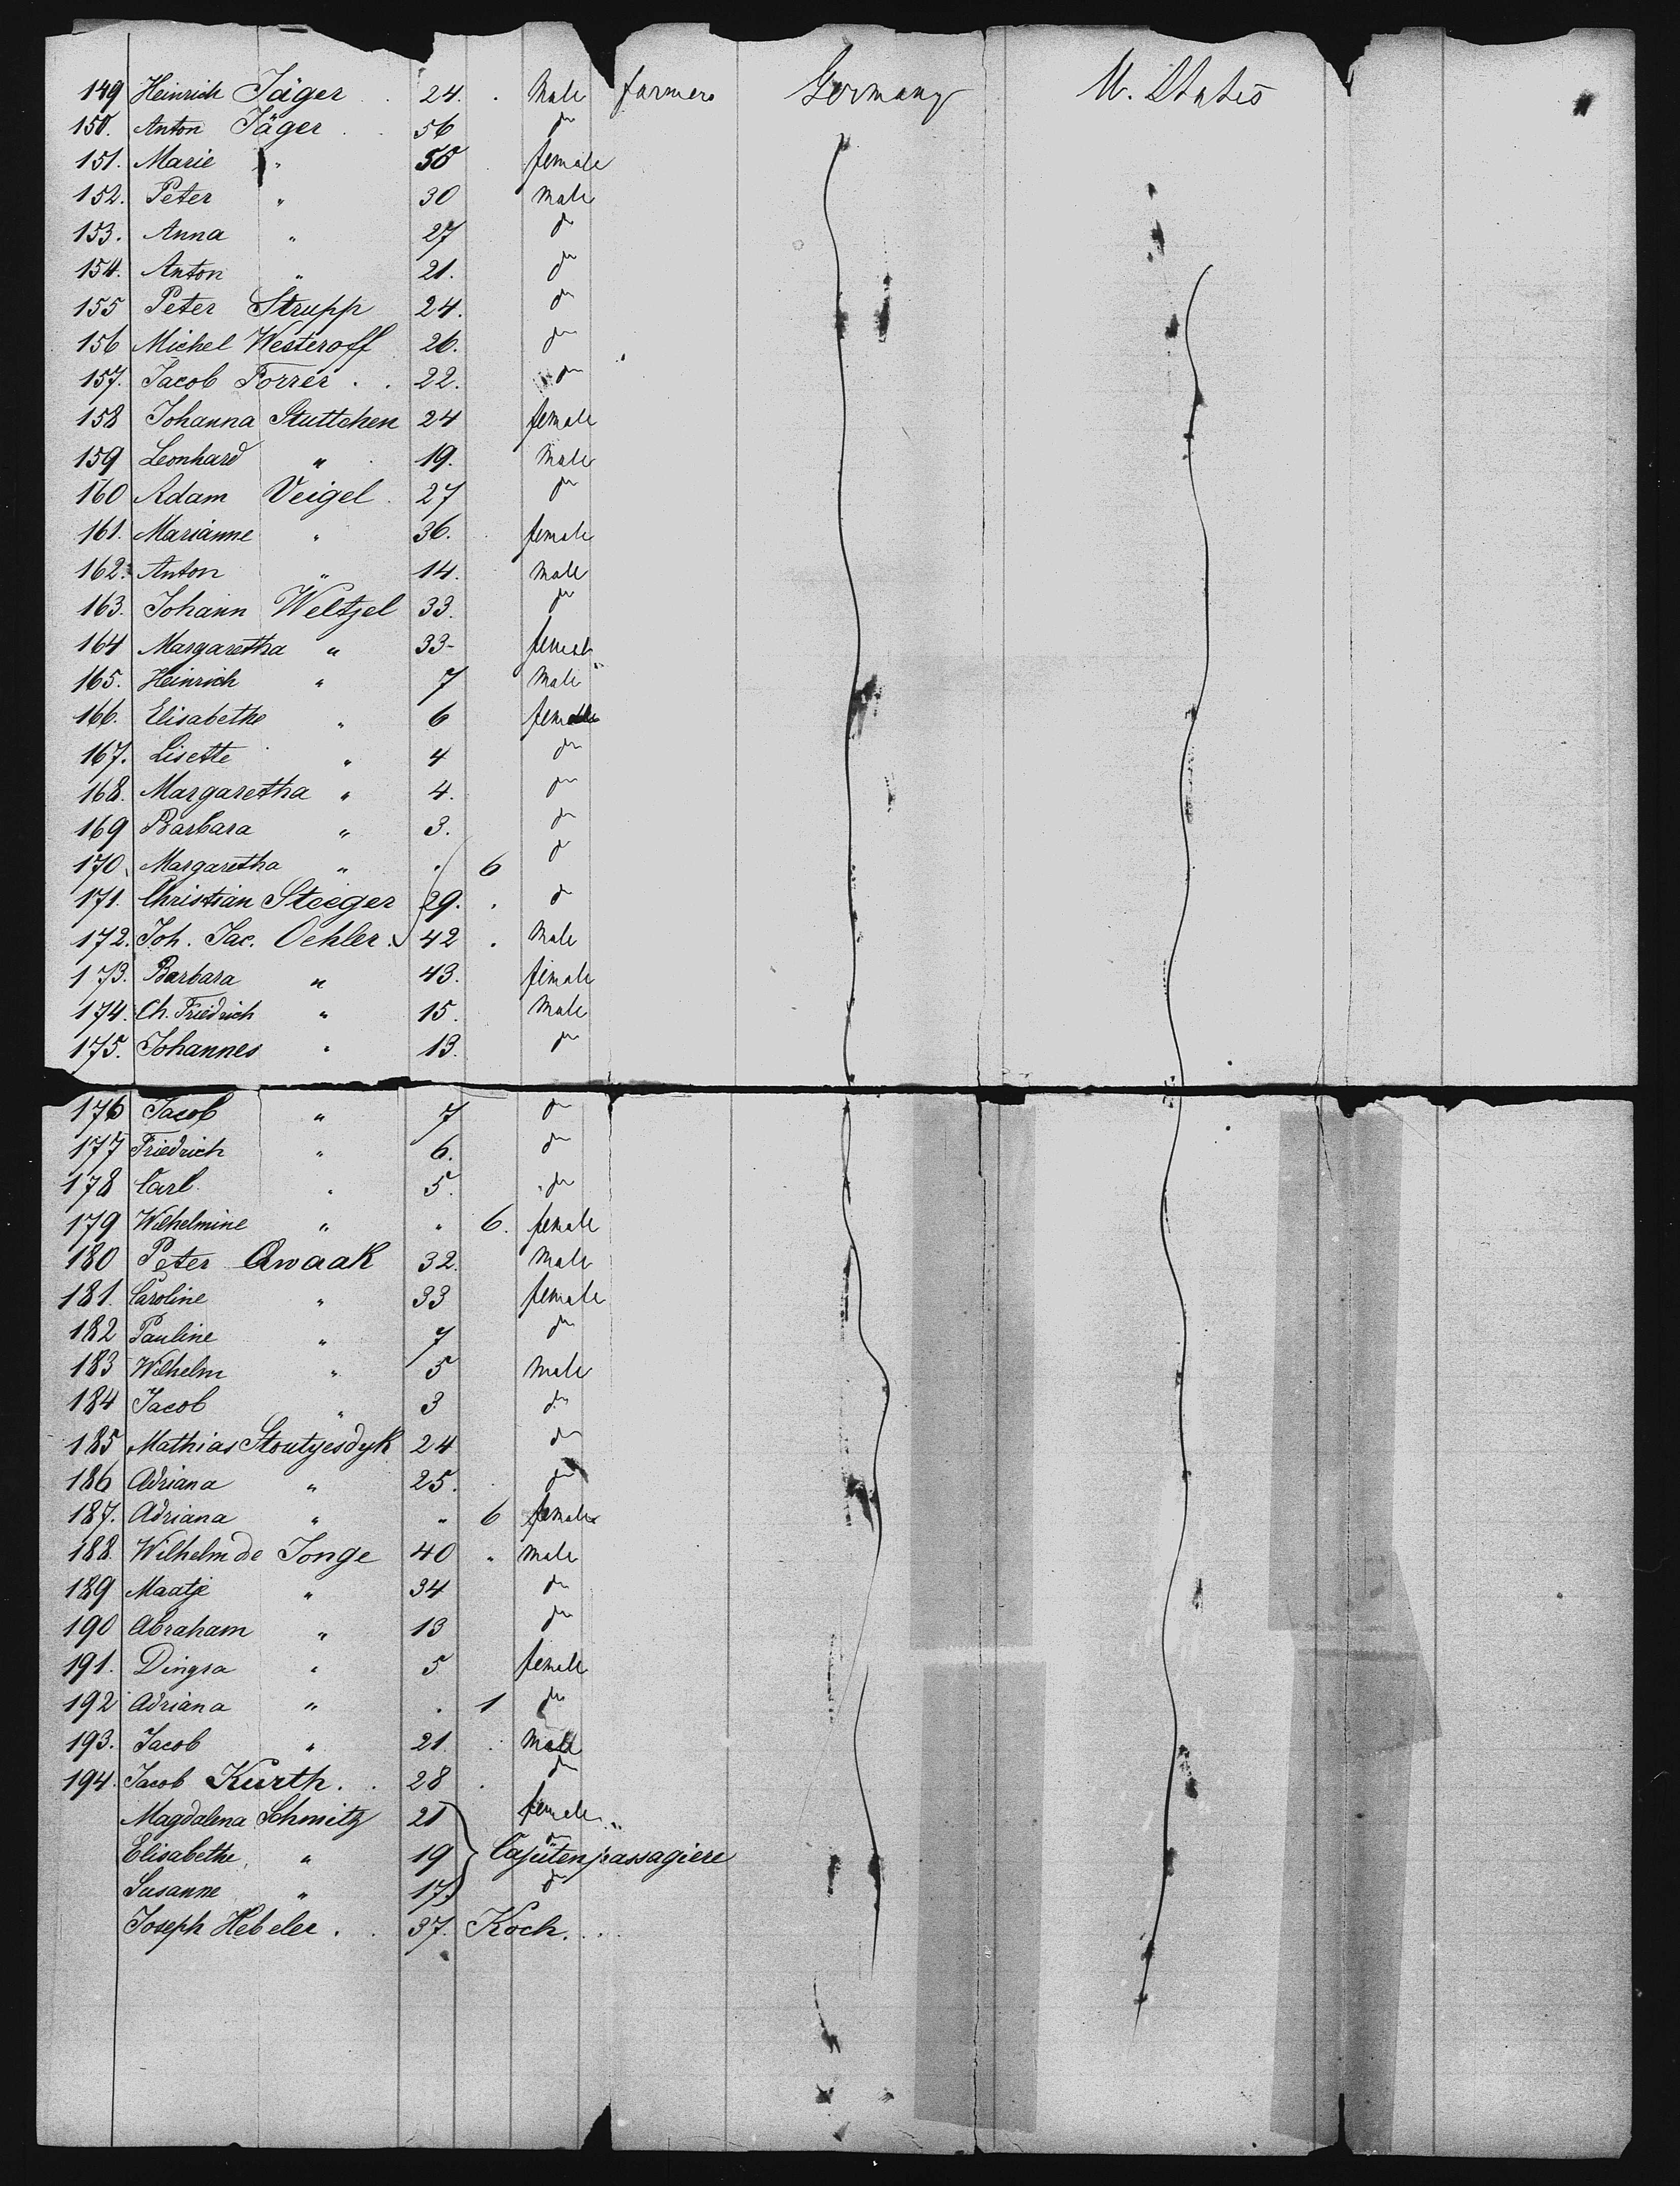 149 Heinrich Jäger . 24. . Male farmers Germany U. States
150. Anton Jäger . . 56 do
151. Marie " 55 female
152. Peter " 30 Male
153. Anna " 27 do
154. Anton " 21. do
155 Peter Strupp 24. do
156 Michel Westeroff 26. do
157. Jacob Forrer . . 22. do
158 Johanna Stuttchen 24 female
159 Leonhard " 19. Male
160 Adam Veigel . 27 do
161. Marianne " 36. female
162. Anton " 14. Male
163. Johann Weltzel 33. do
164 Margaretha " 33- female
165. Heinrich " 7 Male
166. Elisabethe " 6 female
167. Lisette " 4 do
168. Margaretha " 4. do
169 Barbara " 3. do
170. Margaretha " . 6 do
171. Christian Steeger 29. . do
172. Joh. Jac. Oehler. 42 . Male
173. Barbara " 43. female
174. Ch. Friedrich " 15. Male
175. Johannes " 13. do
176 Jacob " 7 do
177 Friedrich " 6. do
178 Carl " 5. do
179 Wilhelmine " " 6. female
180 Peter Qwaak 32. Male
181. Caroline " 33 female
182 Pauline " 7 do
183 Wilhelm " 5 Male
184 Jacob " 3 do
185 Mathias Stoutyesdyk 24 do
186 Adriana " 25. do
187. Adriana " " 6 female
188. Wilhelm de Jonge 40 " Male
189 Maatje " 34 do
190 Abraham " 13 do
191. Dingsa " 5 female
192 Adriana " . 1 do
193. Jacob " 21 . Male
194. Jacob Kurth . . 28 . do
Magdalena Schmitz 21 female
Elisabethe " 19 Cajütenpassagiere do
Susanne " 17. do
Joseph Hebeler . . 37. Koch. . .